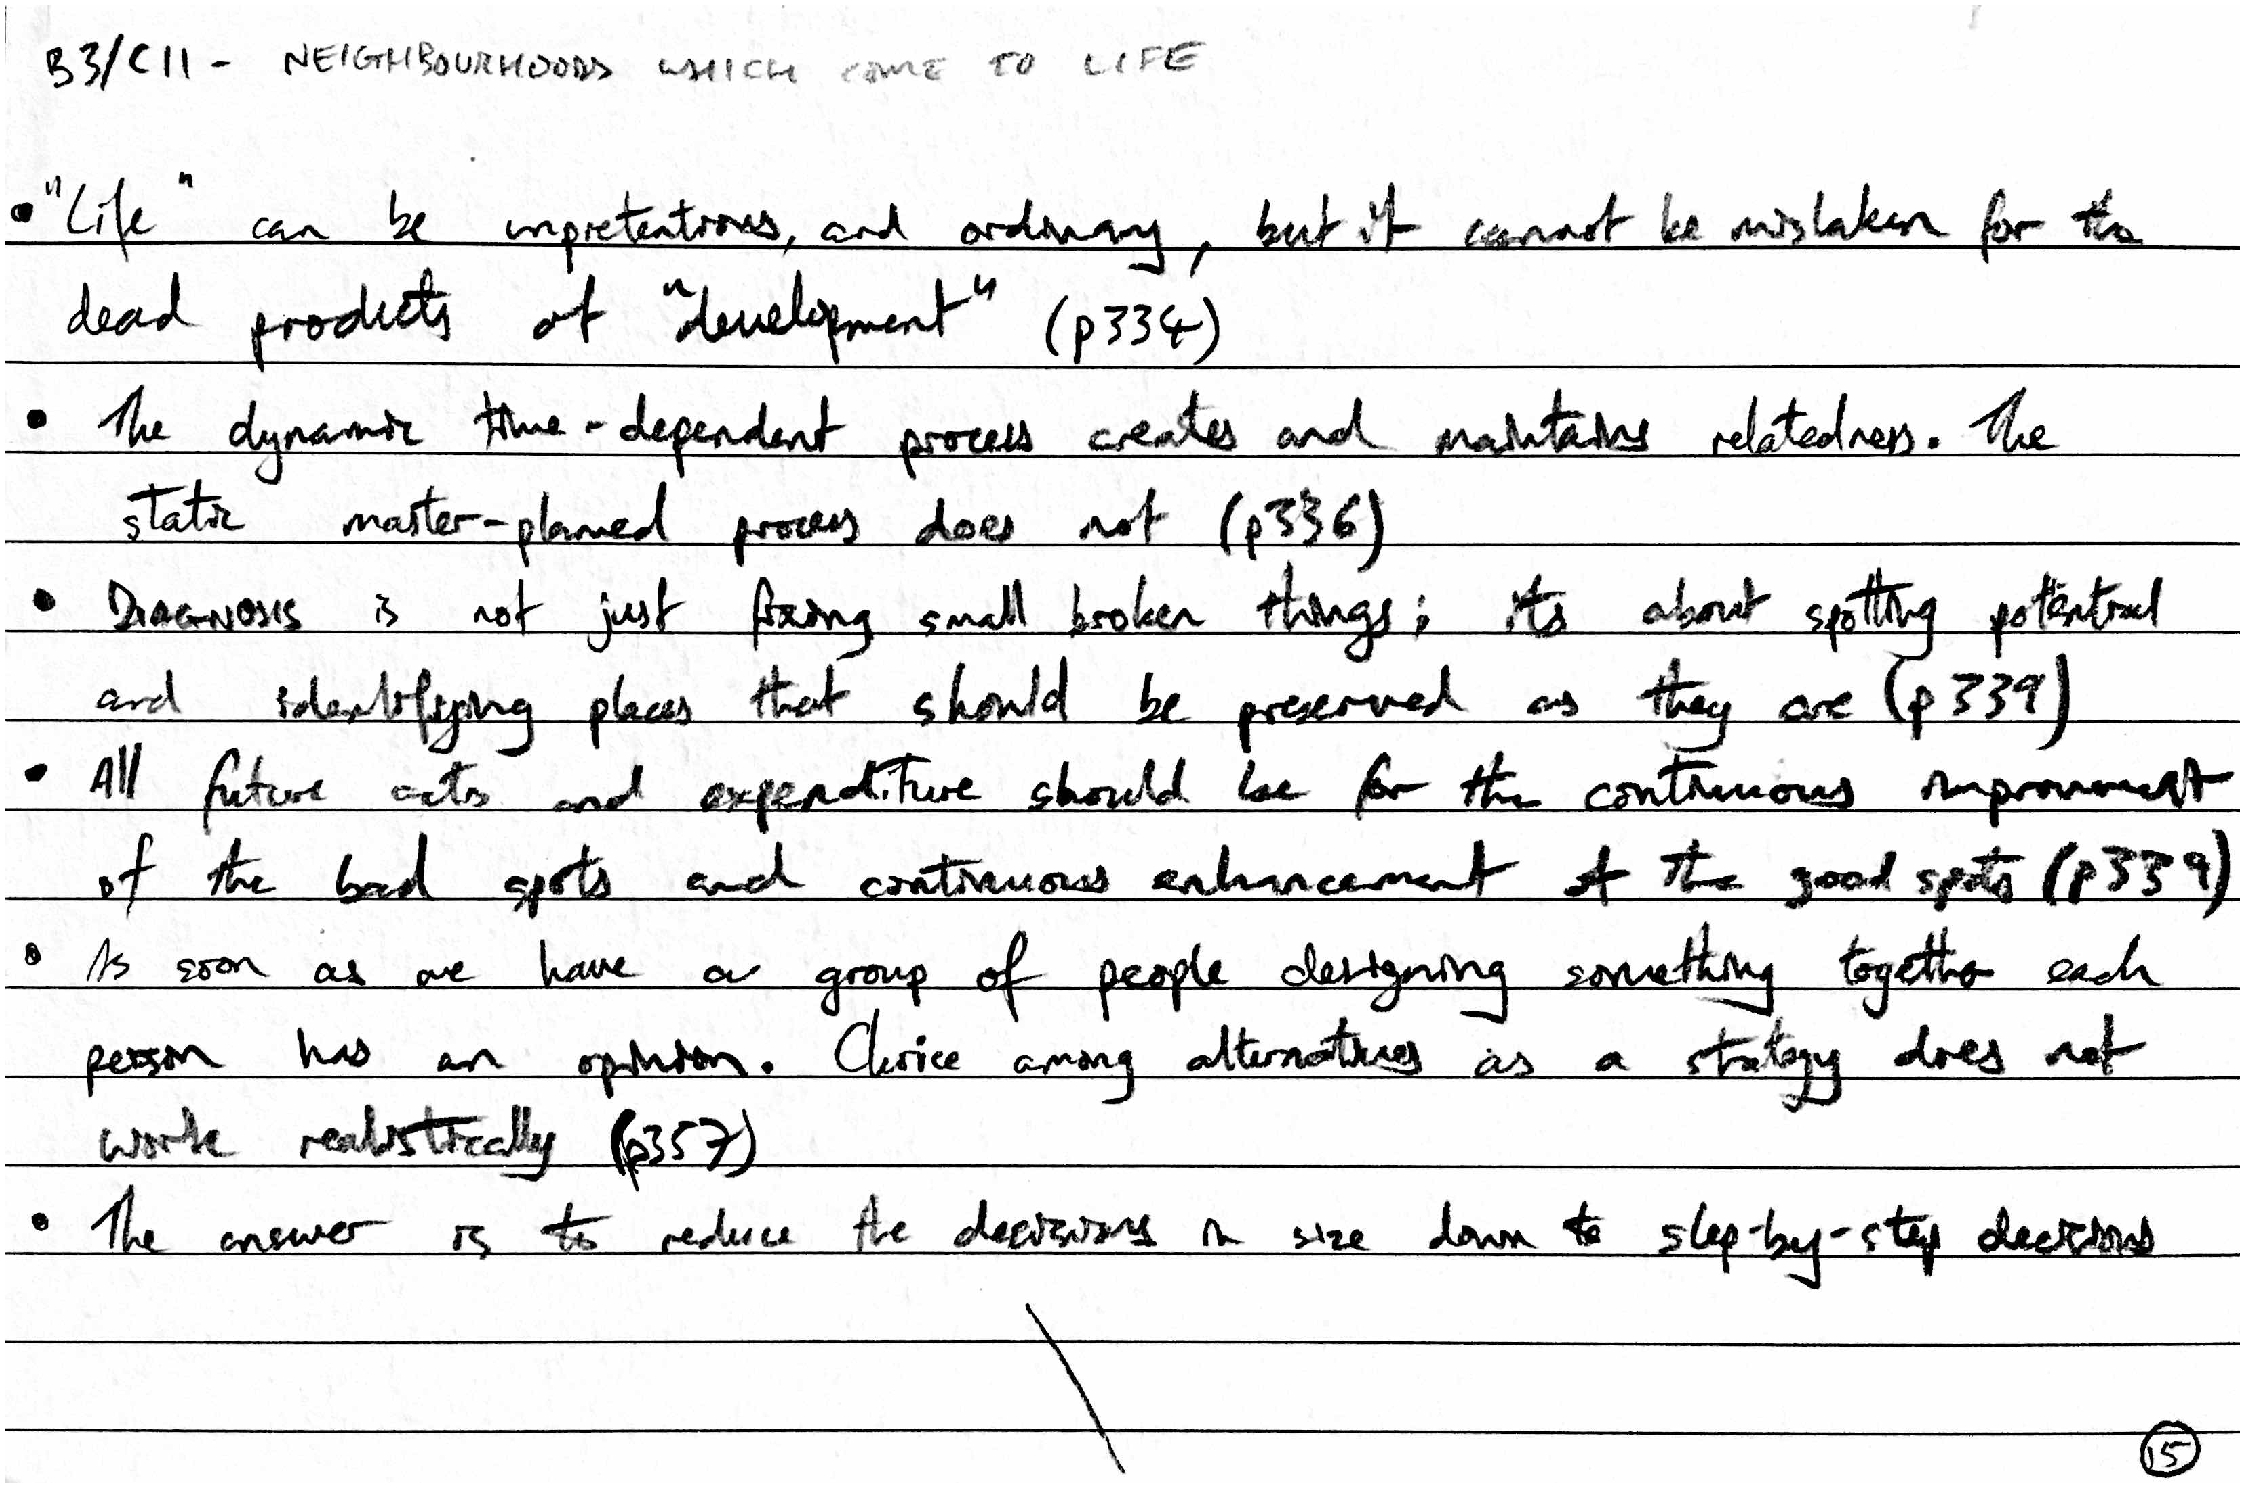 B3/C11 - NEIGHBOURHOODS WHICH COME TO LIFE
• "Life" can be unpretentious, and ordinary, but it cannot be mistaken for the
dead products of "development" (p334)
• The dynamic time-dependent process creates and maintains relatedness. The
static master-planned process does not (p336)
• DIAGNOSIS is not just fixing small broken things; its about spotting potential
and identifying places that should be preserved as they are (p339)
• All future acts and expenditure should be for the continuous improvement
of the bad spots and continuous enhancement of the good spots (p339)
• As soon as we have a group of people designing something together each
person has an opinion. Choice among alternatives as a strategy does not
work realistically (p357)
• The answer is to reduce the decisions in size down to step-by-step decisions
15